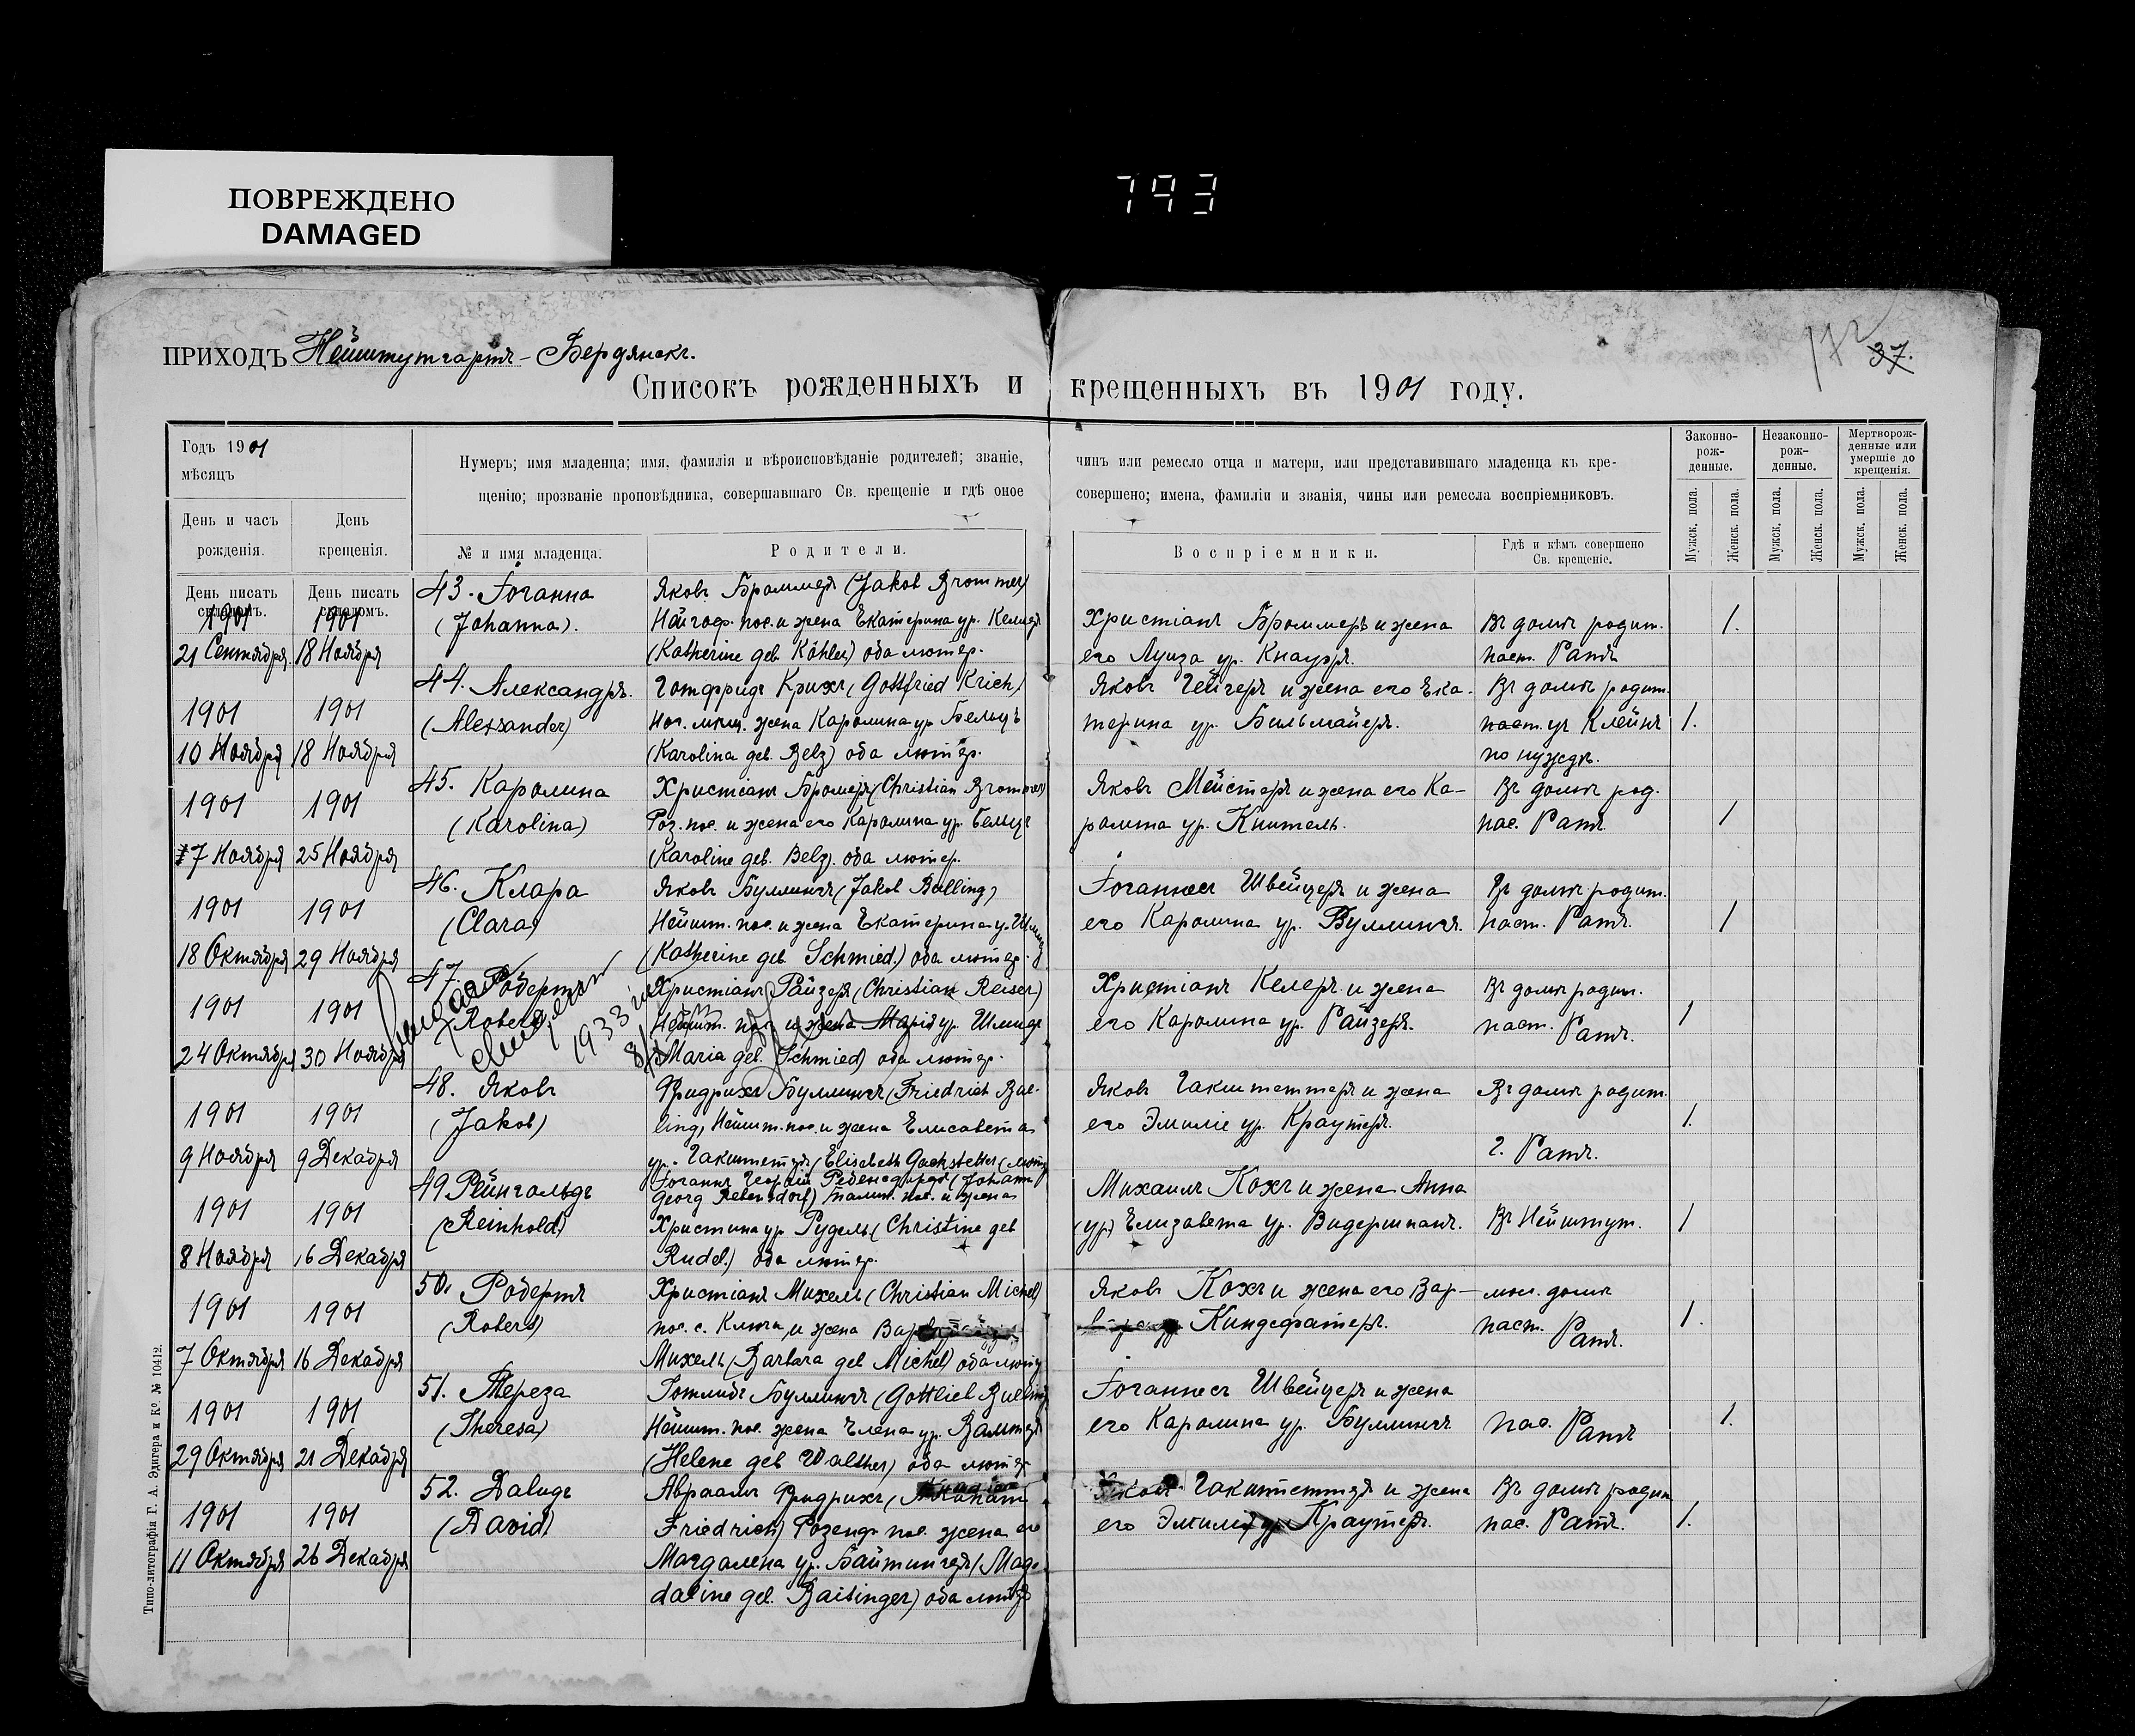 ПОВРЕЖДЕНО
DAMAGED
793
ПРИХОДЪ Нейштутгартъ - Бердянскъ.
37.
Списокъ рожденныхъ и крещенныхъ въ 1901 году.
Годъ 1901
мѣсяцъ
День и часъ рожденія.
День крещенія.
Нумеръ; имя младенца; имя, фамилія и вѣроисповѣданіе родителей; званіе, чинъ или ремесло отца и матери, или представившаго младенца къ кре-
щенію; прозваніе проповѣдника, совершавшаго Св. крещеніе и гдѣ оное совершено; имена, фамиліи и званія, чины или ремесла воспріемниковъ.
№ и имя младенца.
Родители.
Воспріемники.
Гдѣ и кѣмъ совершено
Св. крещеніе.
Законно-
рож-
денные.
Незаконно-
рож-
денные.
Мертворож-
денные или
умершіе до
крещенія.
Мужск. пола.
Женск. пола.
Мужск. пола.
Женск. пола.
Мужск. пола.
Женск. пола.
День писать
складомъ.
День писать
складомъ.
1901
21 Сентября
1901
18 Ноября
43. Іоганна
(Johanna).
Яковъ Броммеръ (Jakob Brommer)
пос. и жена Екатерина ур. Келеръ
(Katherine geb Köhler) оба лютер.
Христіанъ Броммеръ и жена
его Луиза ур. Кнауэръ.
Въ домѣ родит.
паст. Ратъ
1.
1901
10 Ноября
1901
18 Ноября
44. Александръ.
(Alexander)
Готфридъ Крихъ (Gottfried Krich)
жена Каролина ур. Бельцъ
(Karolina geb. Belz) оба лютер.
Яковъ Гейгеръ и жена его Ека-
терина ур. Бильмайеръ.
Въ домѣ родит.
Клейнъ
по нуждѣ.
1.
1901
17 Ноября
1901
25 Ноября
45. Каролина
(Karolina)
Христіанъ Бромеръ (Christian Brommer)
Роз. пос. и жена его Каролина ур. Бельцъ
(Karoline geb. Belz). оба лютер.
Яковъ Мейстеръ и жена его Ка-
ролина ур. Книтель.
Въ домѣ род.
пас. Ратъ.
1
1901
18 Октября
1901
29 Ноября
46. Клара
(Clara)
Яковъ Буллингъ (Jakob Bulling)
Нейшт. пос. и жена Екатерина ур. Шмидъ
(Katherine geb Schmied.) оба лютер.
Іоганнесъ Швейцеръ и жена
его Каролина ур. Буллингъ.
Въ домѣ родит.
паст. Ратъ.
1
1901
24 Октября
1901
30 Ноября
47. Робертъ
(Robert)
1933
Христіанъ Райзеръ (Christian Reiser)
Нейшт. пос. и жена Марія ур. Шмидъ
(Maria geb. Schmied) оба лютер.
Христіанъ Келеръ и жена
его Каролина ур. Райзеръ.
Въ домѣ родит.
паст. Ратъ.
1
1901
9 Ноября
1901
9 Декабря
48. Яковъ
(Jakob)
Фридрихъ Буллингъ (Friedrich Bul-
ling) Нейшт. пос. и жена Елисавета
ур. Гакштетеръ (Elisabeth Gackstetter) лют.
Яковъ Гакштеттеръ и жена
его Эмиліе ур. Краутеръ.
Въ домѣ родит.
Ратъ.
1.
1901
8 Ноября
1901
16 Декабря
49 Рейнгольдъ
(Reinhold)
Іоганнъ Георгій Ребенсдорфъ (Johann
Georg Rebensdorf) пос. и жена
Христина ур. Рудель (Christine geb
Rudel.) оба лютер.
Михаилъ Кохъ и жена Анна
(ур) Елизавета ур. Видершпанъ.
Въ Нейштут.
1
1901
7 Октября
1901
16 Декабря
50. Робертъ
(Robert)
Христіанъ Михель (Christian Michel)
пос. с. и жена
Михель (Barbara geb Michel) оба лютер
Яковъ Кохъ и жена его Вар-
Киндсфатеръ.
мол. домѣ
паст. Ратъ.
1.
1901
29 Октября
1901
21 Декабря
51. Тереза
(Theresa)
Готлибъ Буллингъ (Gottlieb Bulling)
Нейшт. пос. жена Елена ур. Валтеръ
(Helene geb Walther) оба лютер
Іоганнесъ Швейцеръ и жена
его Каролина ур. Буллингъ
пас. Ратъ
1.
1901
11 Октября
1901
26 Декабря
52. Давидъ
(David)
Авраамъ Фридрихъ (Abraham
Friedrich) Розенф. пос. жена его
Магдалена ур. Байтингеръ (Mag-
daline geb. Baitinger) оба лютер
Яковъ Гакштеттеръ и жена
его Эмилія ур. Краутеръ.
Въ домѣ родит
пас. Ратъ.
1.
Типо-литографія Г. А. Эдигера и Ко. № 10412.